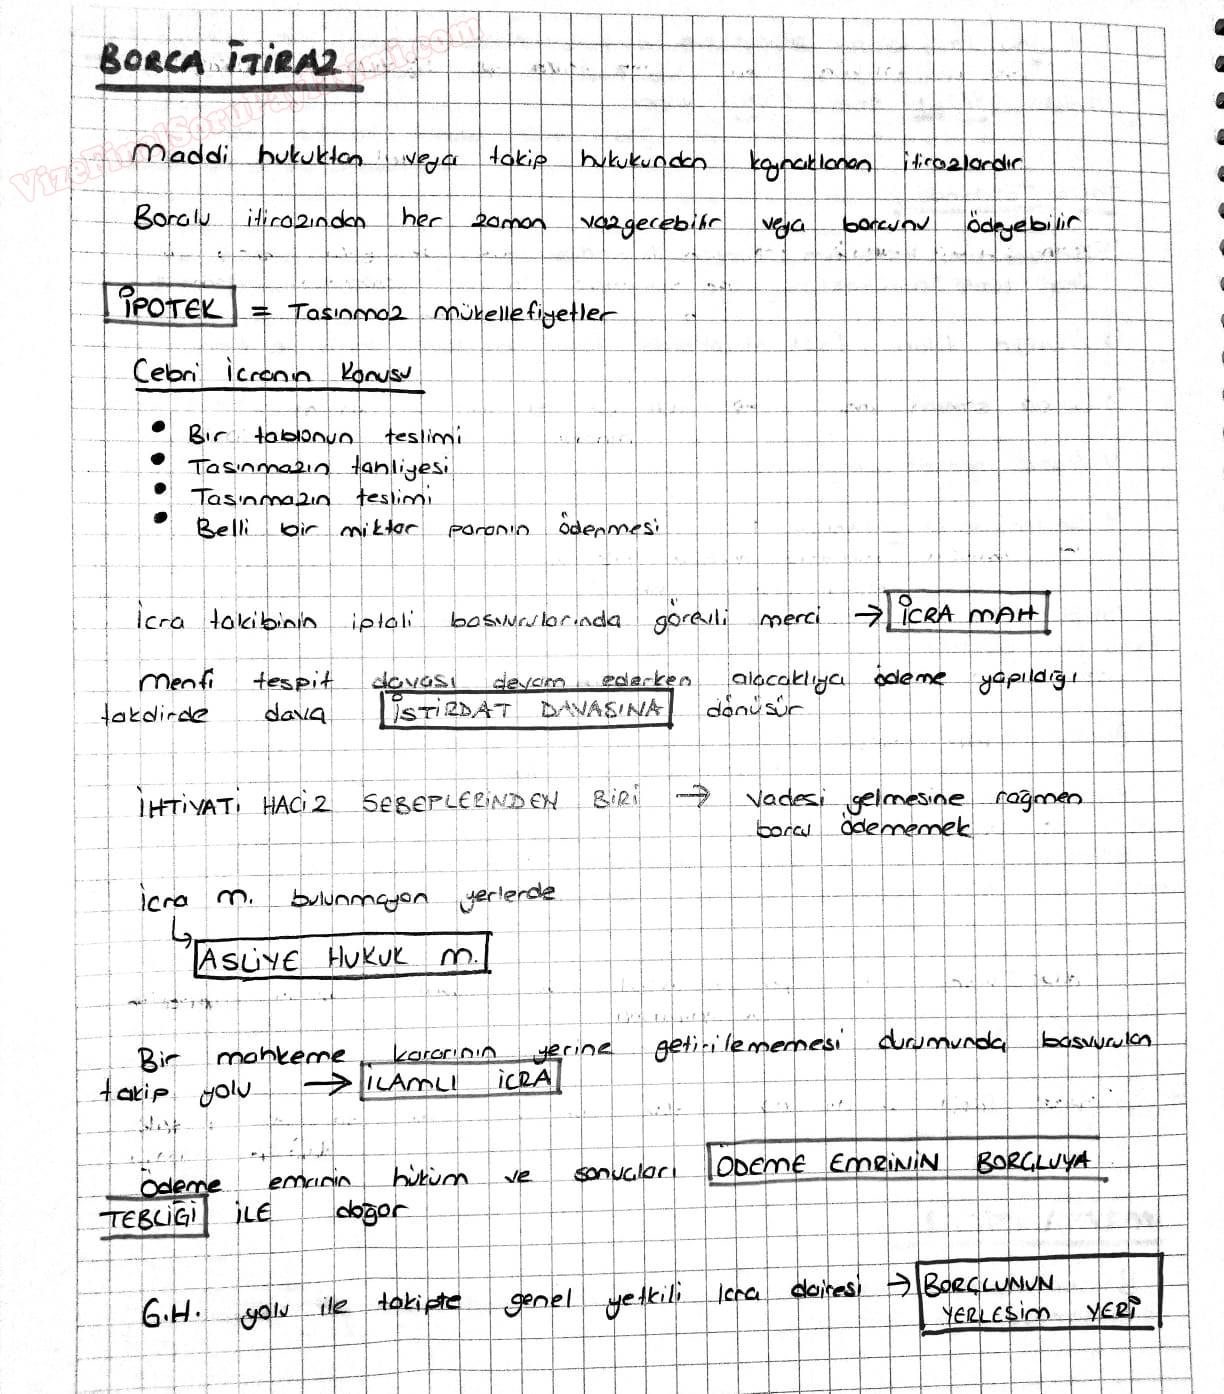 VizeFinalSoruPaylasimi.com
BORCA İTİRAZ
Maddi hukuktan veya takip hukukundan kaynaklanan itirazlardır
Borçlu itirazından her zaman vazgeçebilir veya borcunu ödeyebilir
İPOTEK = Tasınmaz mükellefiyetler
Cebri İcranın Konusu
• Bir tablonun teslimi
• Tasınmazın tahliyesi
• Tasınmazın teslimi
• Belli bir miktar paranın ödenmesi
İcra takibinin iptali basvurularında görevli merci → İCRA MAH
Menfi tespit davası devam ederken alacaklıya ödeme yapıldığı
takdirde dava İSTİRDAT DAVASINA dönüsür
İHTİYATİ HACİZ SEBEPLERİNDEN BİRİ → Vadesi gelmesine rağmen
borcu ödememek
İcra m. bulunmayan yerlerde
↳ ASLİYE HUKUK M.
Bir mahkeme kararının yerine getirilememesi durumunda basvurulan
takip yolu → İLAMLI İCRA
Ödeme emrinin hüküm ve sonucları ÖDEME EMRİNİN BORÇLUYA
TEBLİĞİ İLE doğar
G.H. yolu ile takipte genel yetkili icra dairesi → BORÇLUNUN
YERLESİM YERİ